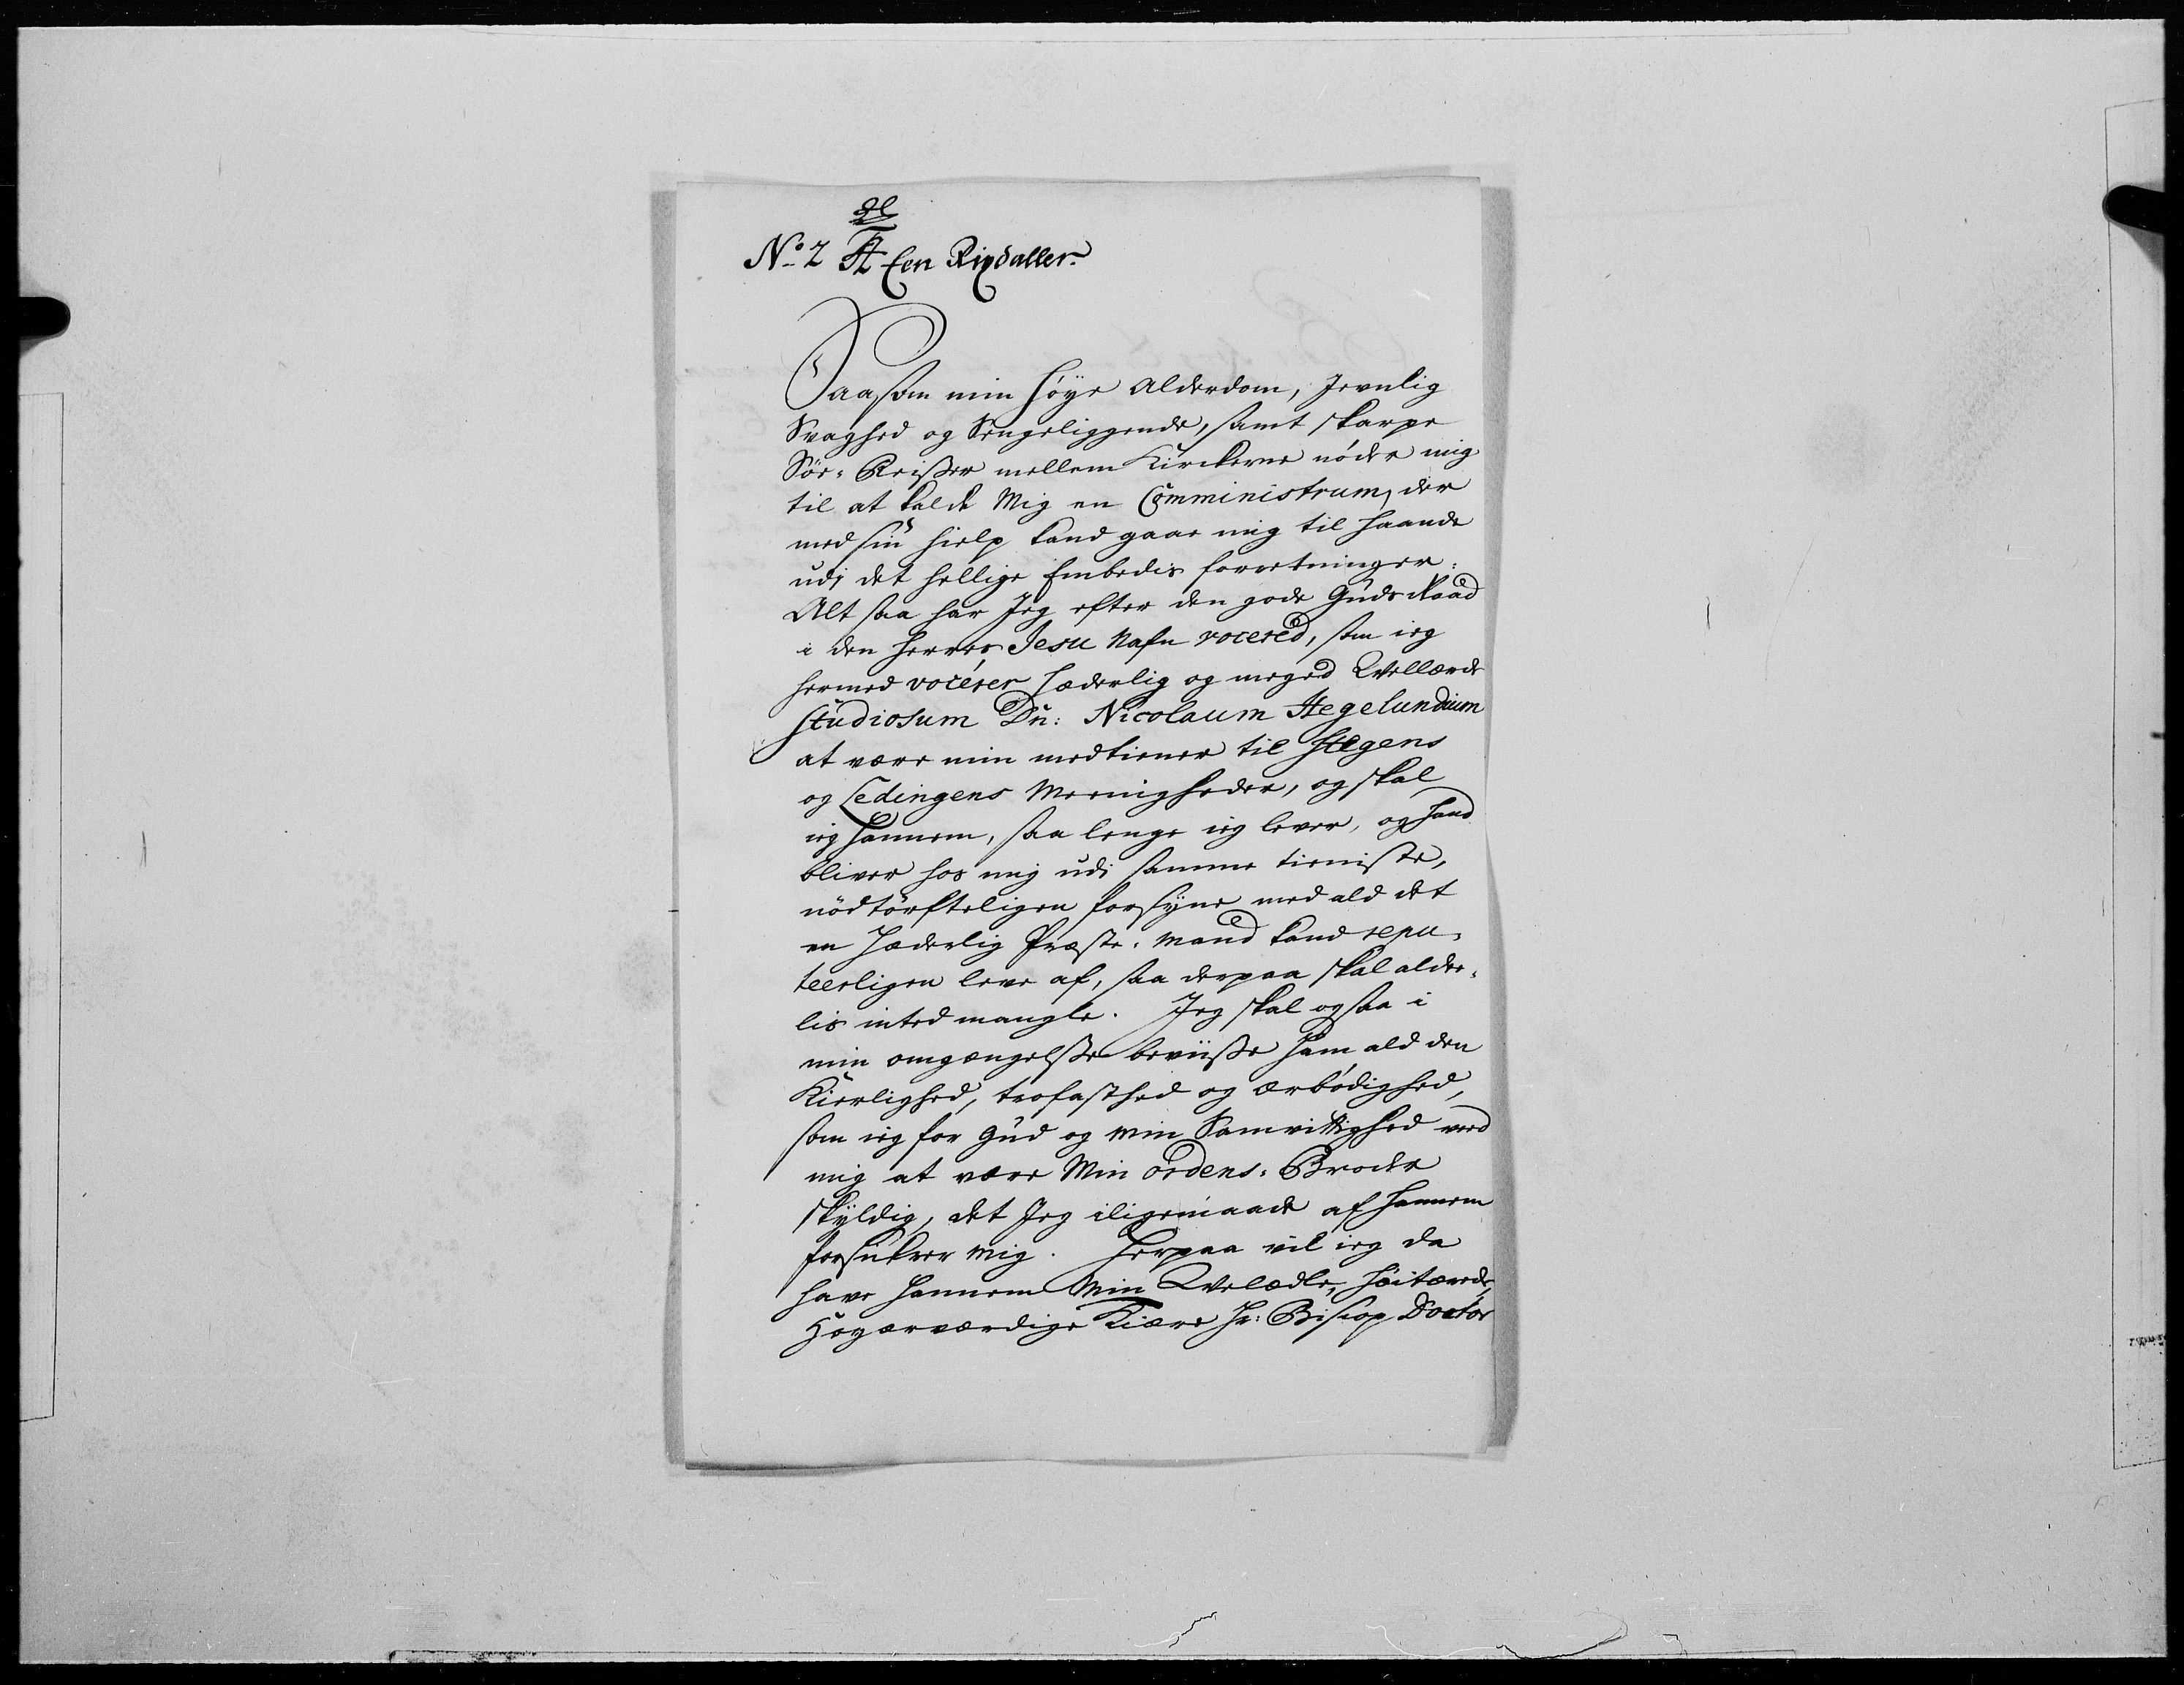 No 2 Een Rixdaller.
Saasom min höye Alderdom, Jevnlig
Svaghed og Sengeliggende, samt skarpe
Söe-Reisser mellem Kirckerne nöder mig
til at kalde Mig en Comministrum, der
med sin hielp kand gaae mig til haande
udi det hellige Embedis forretninger:
Alt saa har Jeg efter den gode Guds Raad
i den Herres Jesu Nafn vocered, som ieg
hermed vocerer hæderlig og meged Wellærde
Studiosum Dn: Nicolaum Hegelundium
at være min medtiener til Stegens
og Ledingens Meenigheder, og skal
ieg hannem, saa lenge ieg lever, og hand
bliver hos mig udi samme tieniste,
nödtörfteligen forsyne med ald det
en Hæderlig Præste-Mand kand repu-
teerligen leve af, saa derpaa skal alde-
lis inted mangle. Jeg skal ogsaa i
min omgængelsse beviisse ham ald den
Kierlighed, trofasthed og ærbödighed,
som ieg for Gud og min Samvittighed veed
mig at være Min Ordens-Broder
skyldig, det Jeg iligemaade af hannem
forsickrer mig. Herpaa vil ieg da
have hannem Min Velædle, Höitærede,
Högærværdige Kiære Hr: Biscop Doctor